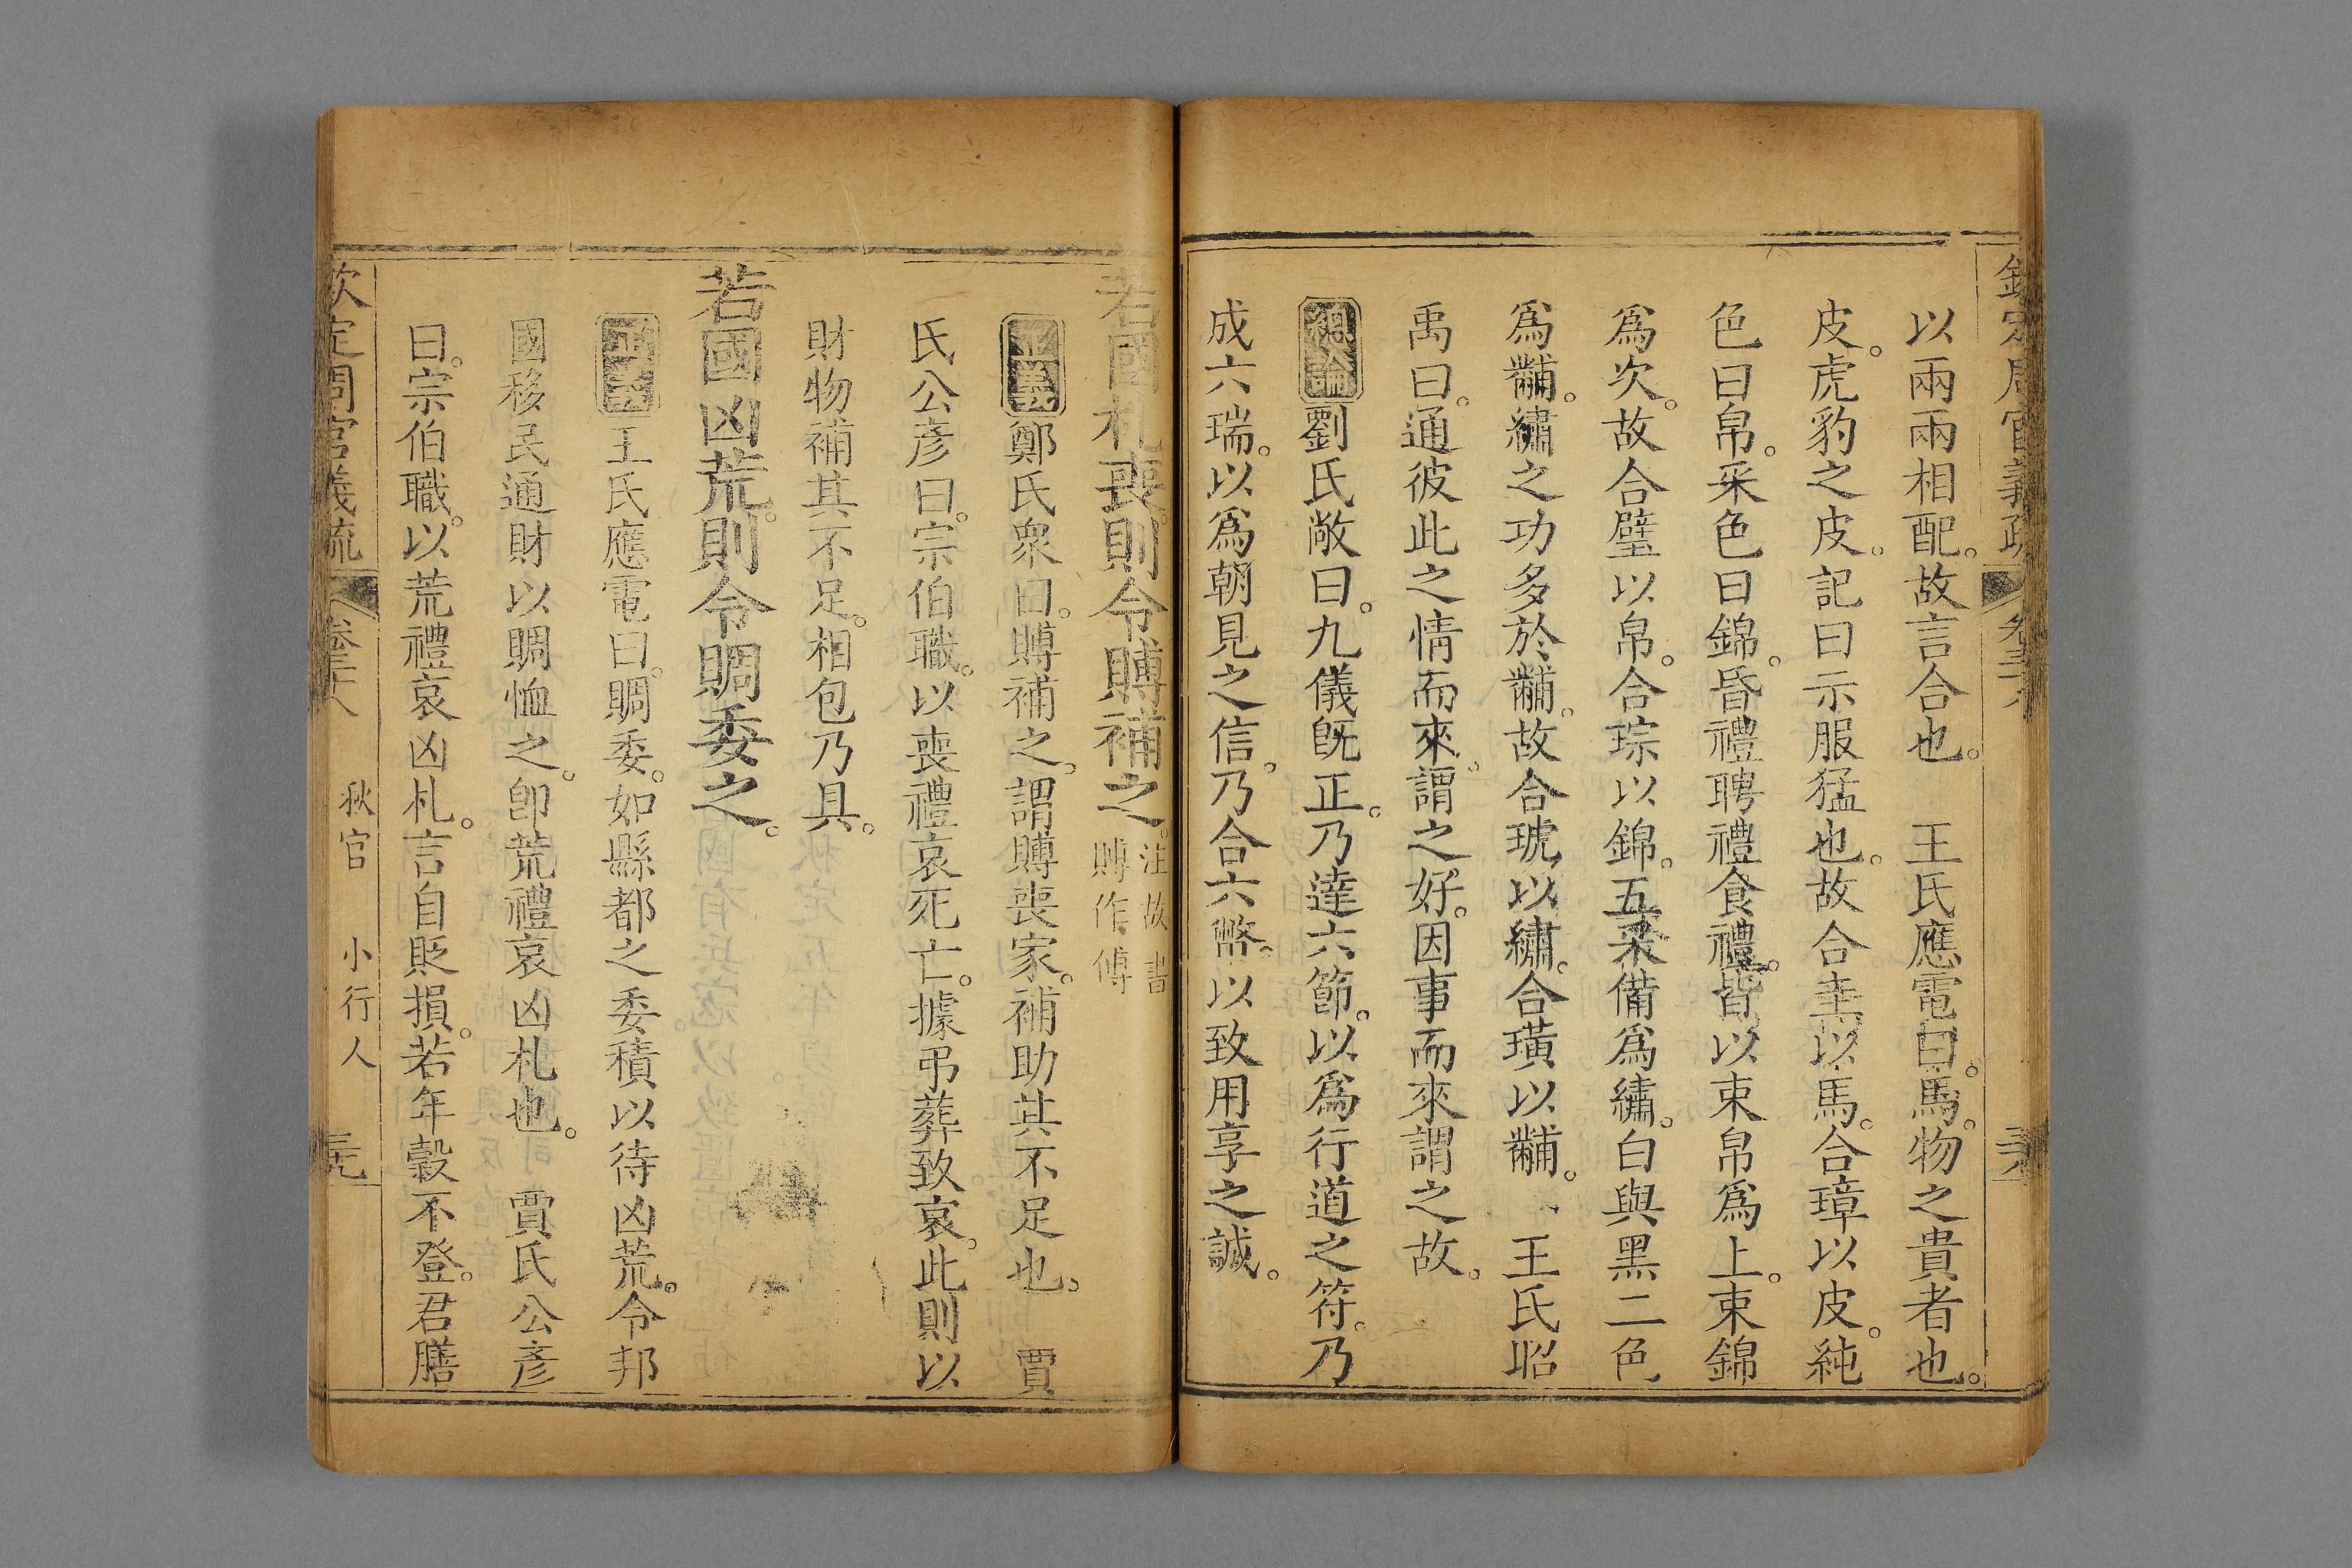 欽定周官義疏 卷三十八 三六
以兩兩相配。故言合也。 王氏應電曰。馬。物之貴者也。
皮。虎豹之皮。記曰示服猛也。故合圭以馬。合璋以皮。純
色曰帛。采色曰錦。昏禮聘禮食禮。皆以束帛爲上。束錦
爲次。故合璧以帛。合琮以錦。五采備爲繡。白與黑二色
爲黼。繡之功多於黼。故合琥以繡。合璜以黼。 王氏昭
禹曰。通彼此之情而來。謂之好。因事而來謂之故。
總論劉氏敞曰。九儀既正。乃達六節。以爲行道之符。乃
成六瑞。以爲朝見之信。乃合六幣。以致用享之誠。
若國札喪。則令賻補之。注故書
賻作傅
正義鄭氏衆曰。賻補之。謂賻喪家。補助其不足也。 賈
氏公彥曰。宗伯職。以喪禮哀死亡。據弔葬致哀。此則以
財物補其不足。相包乃具。
若國凶荒。則令賙委之。
正義王氏應電曰。賙委。如縣都之委積以待凶荒。令邦
國移民通財以賙恤之。卽荒禮哀凶札也。 賈氏公彥
曰。宗伯職。以荒禮哀凶札。言自貶損。若年穀不登。君膳
欽定周官義疏 卷三十八 秋官 小行人